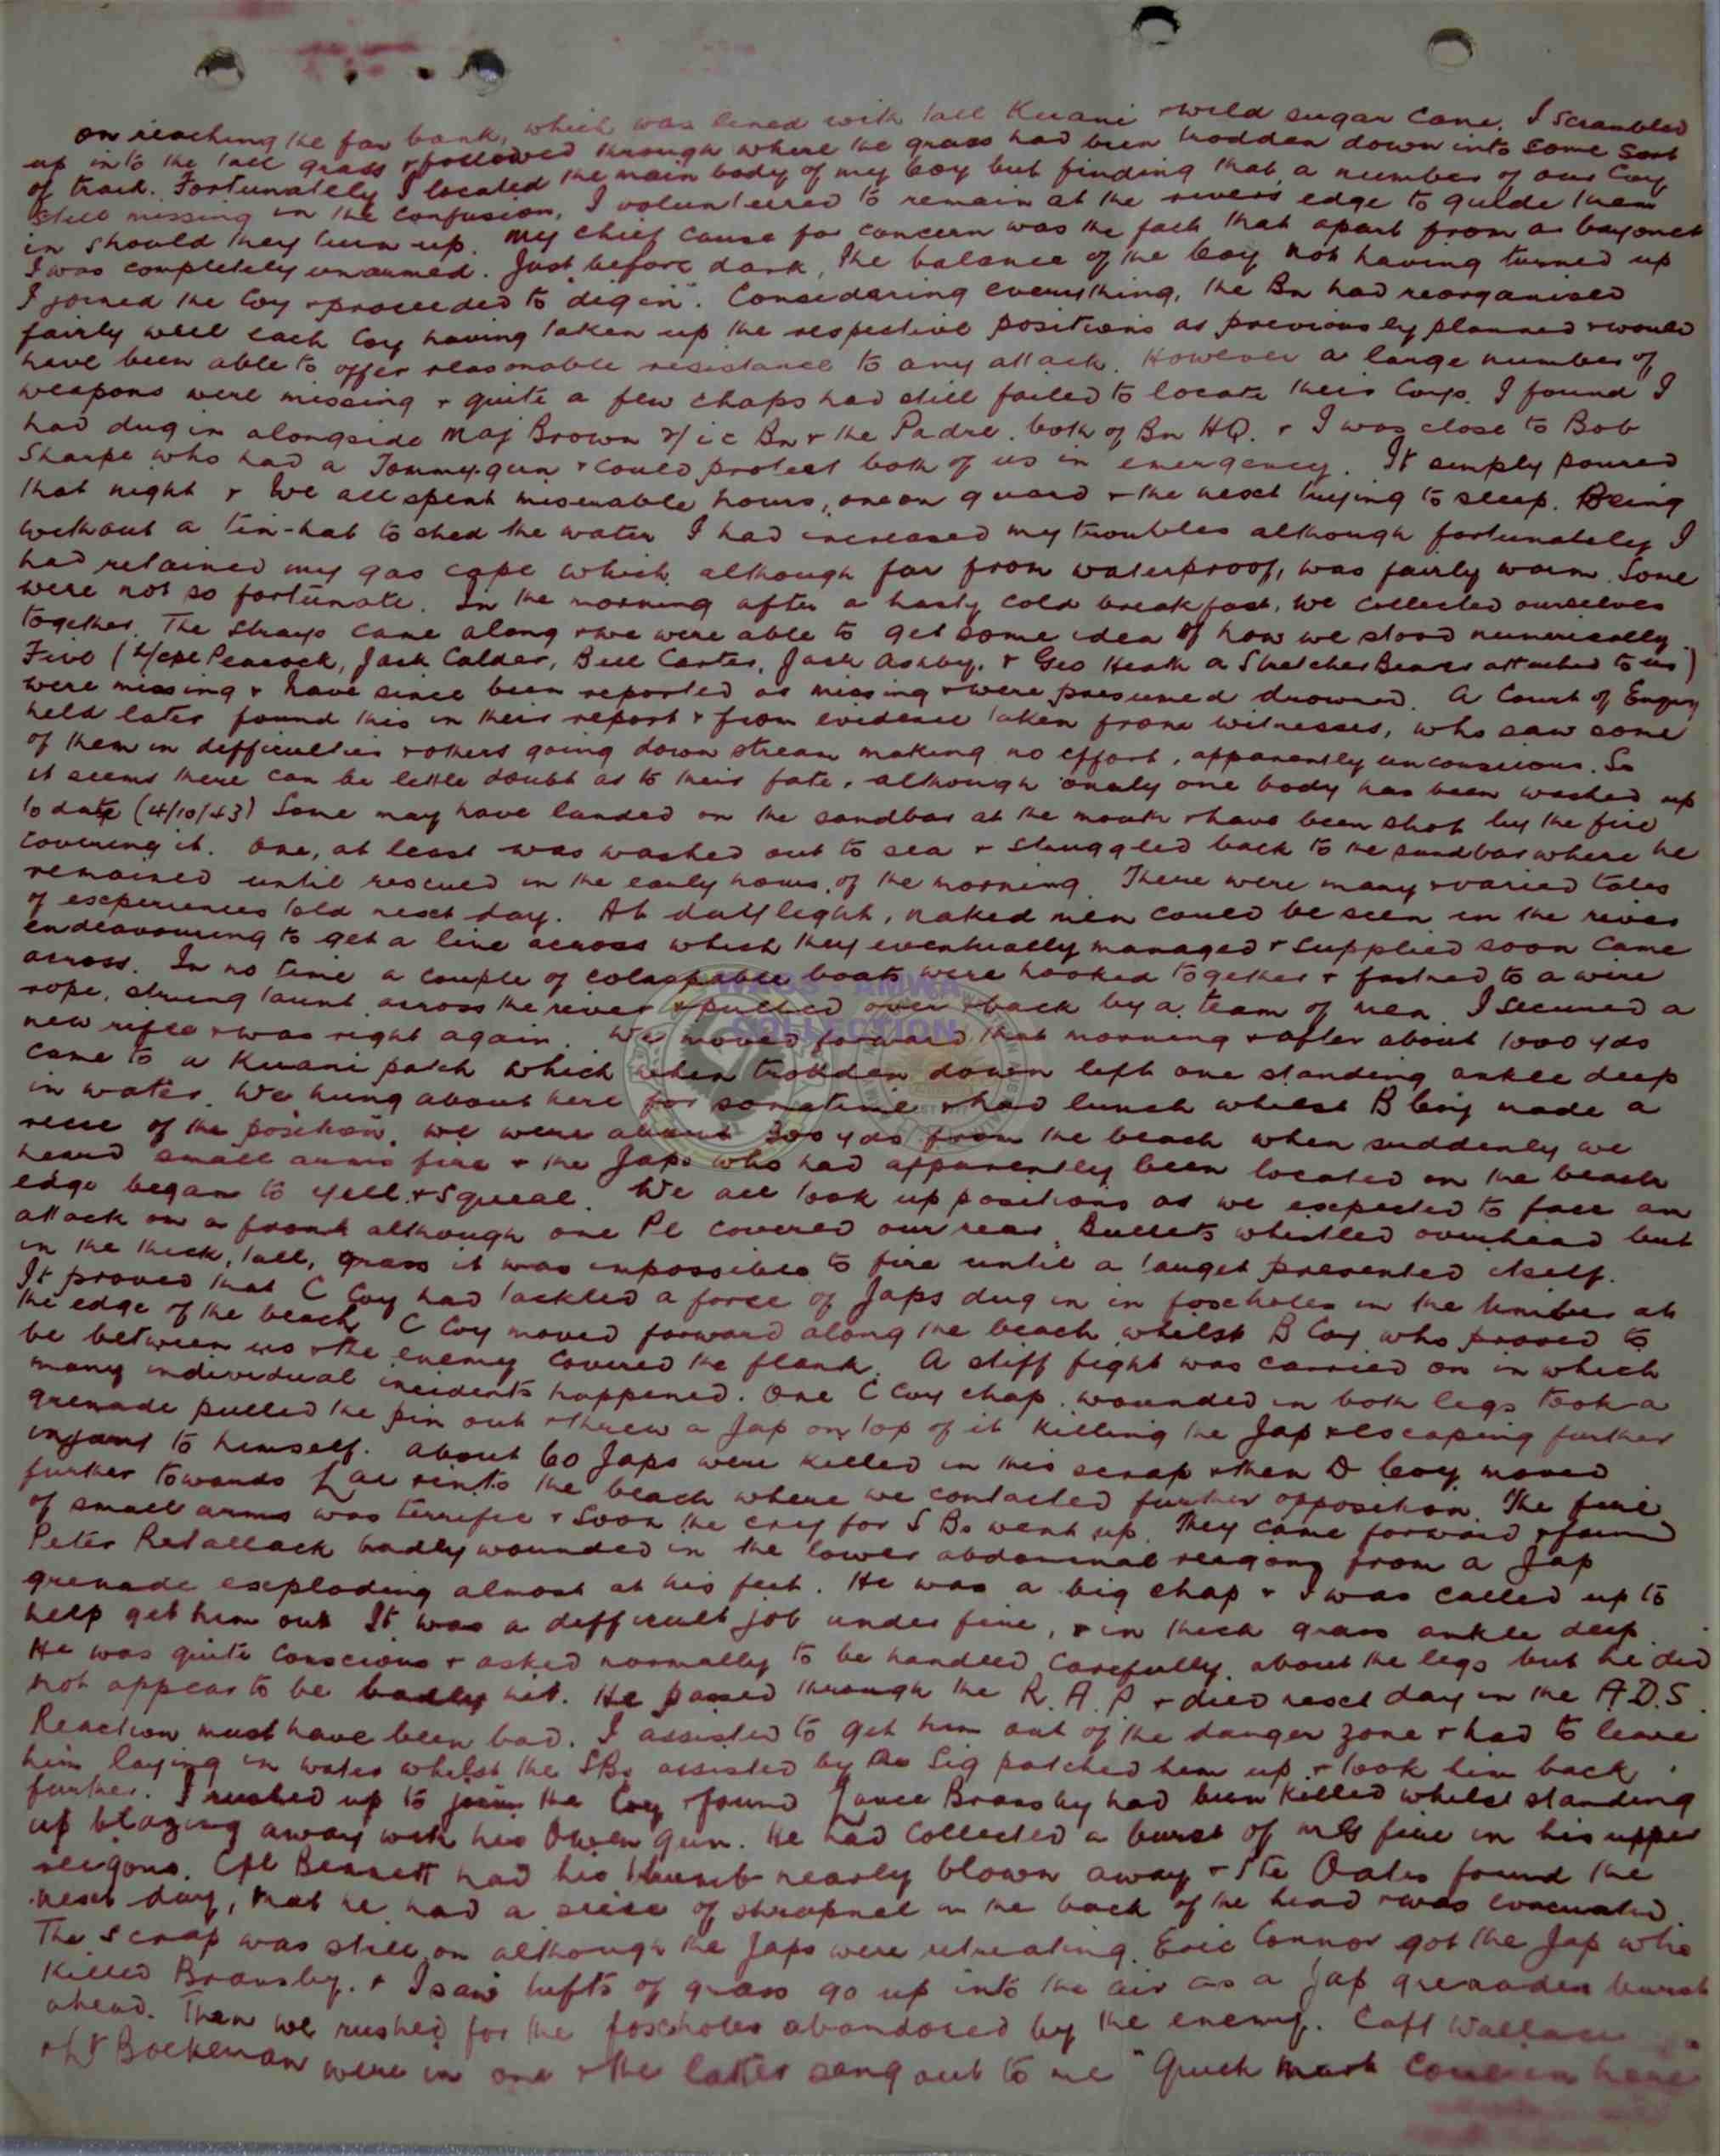 on reaching the far bank, which was lined with tall Kunai & wild sugar cane. I scrambled
up into the tall grass & followed through where the grass had been trodden down into some sort
of track. Fortunately I located the main body of my Coy but finding that a number of our Coy
still missing in the confusion, I volunteered to remain at the rivers edge to guide them
in should they turn up. My chief cause for concern was the fact that apart from a bayonet
I was completely unarmed. Just before dark, the balance of the Coy not having turned up
I joined the Coy & proceeded to "dig in". Considering everything, the Bn had reorganised
fairly well each Coy having taken up the respective positions as previously planned & would
have been able to offer reasonable resistance to any attack. However a large number of
weapons were missing & quite a few chaps had still failed to locate their Coys. I found I
had dug in alongside Maj Brown 2/ic Bn & the Padre. both of Bn HQ. & I was close to Bob
Sharpe who had a Tommy-gun & could protect both of us in emergency. It simply poured
that night & we all spent miserable hours, one on guard & the next trying to sleep. Being
without a tin-hat to shed the water I had increased my troubles although fortunately I
had retained my gas cape which, although far from waterproof, was fairly warm. Some
were not so fortunate. In the morning after a hasty cold breakfast, we collected ourselves
together. The strays came along & we were able to get some idea of how we stood numerically.
Five (L/cpl Peacock, Jack Calder, Bill Carter, Jack Ashby, & Geo Heath a Stretcher Bearer attached to us)
were missing & have since been reported as missing & were presumed drowned. A Court of Enquiry
held later found this in their report & from evidence taken from witnesses, who saw some
of them in difficulties & others going down stream making no effort, apparently unconscious. So
it seems there can be little doubt as to their fate, although only one body has been washed up
to date (4/10/43) Some may have landed on the sandbar at the mouth & have been shot by the fire
covering it. One, at least was washed out to sea & struggled back to the sandbar where he
remained until rescued in the early hours of the morning. There were many & varied tales
of experiences told next day. At daylight, naked men could be seen in the river
endeavouring to get a line across which they eventually managed & supplies soon came
across. In no time a couple of colapsable boats were hooked together & fastned to a wire
rope, strung taunt across the river & pulled over & back by a team of men. I secured a
new rifle & was right again. We moved forward that morning & after about 1000 yds
came to a Kunai patch which when trodden down left one standing ankle deep
in water. We hung about here for sometime & had lunch whilst B Coy made a
recce of the position. We were about 300 yds from the beach when suddenly we
heard small arms fire & the Japs who had apparently been located on the beach
edge began to yell & squeal. We all took up positions as we expected to face an
attack on a front although one Pl covered our rear. Bullets whistled overhead but
in the thick, tall, grass it was impossible to fire until a target presented itself.
It proved that C Coy had tackled a force of Japs dug in in foxholes in the timber at
the edge of the beach. C Coy moved forward along the beach whilst B Coy who proved to
be between us & the enemy covered the flank. A stiff fight was carried on in which
many individual incidents happened. One C Coy chap wounded in both legs took a
grenade pulled the pin out & threw a Jap on top of it killing the Jap & escaping further
injury to himself. About 60 Japs were killed in this scrap & then D Coy moved
further towards Lae & into the beach where we contacted further opposition. The fire
of small arms was terrific & soon the cry for SBs went up. They came forward & found
Peter Retallack badly wounded in the lower abdominal reigons from a Jap
grenade exploding almost at his feet. He was a big chap & I was called up to
help get him out. It was a difficult job under fire, & in thick grass ankle deep.
He was quite conscious & asked normally to be handled carefully about the legs but he did
not appear to be badly hit. He passed through the R.A.P & died next day in the A.D.S.
Reaction must have been bad. I assisted to get him out of the danger zone & had to leave
him laying in water whilst the SBs assisted by a Sig patched him up & took him back
further. I rushed up to join the Coy & found Lance Bransby had been killed whilst standing
up blazing away with his Owen gun. He had collected a burst of MG fire in his upper
reigons. Cpl Bennett had his thumb nearly blown away & Pte Oates found the
next day, that he had a piece of shrapnel in the back of the head & was evacuated.
The scrap was still on although the Japs were retreating. Eric Connor got the Jap who
killed Bransby. & I saw tufts of grass go up into the air as a Jap grenades burst
ahead. Then we rushed for the foxholes abandoned by the enemy. Capt Wallace
& Lt Bockeman were in one & the latter sang out to me "Quick Mark come in here
WAGS - ANWA
COLLECTION